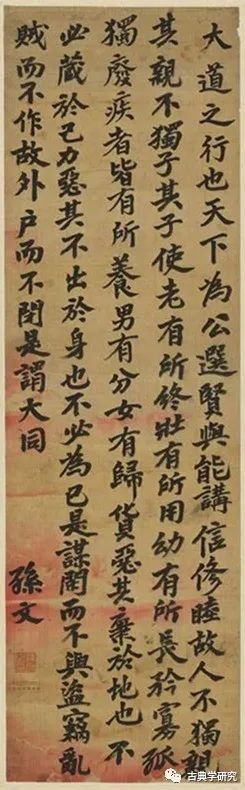 大道之行也天下為公選賢與能講信修睦故人不獨親
其親不獨子其子使老有所終壯有所用幼有所長矜寡孤
獨廢疾者皆有所養男有分女有歸貨惡其棄於地也不
必藏於己力惡其不出於身也不必為己是謀閉而不興盜竊亂
賊而不作故外戶而不閉是謂大同
孫文
古典学研究